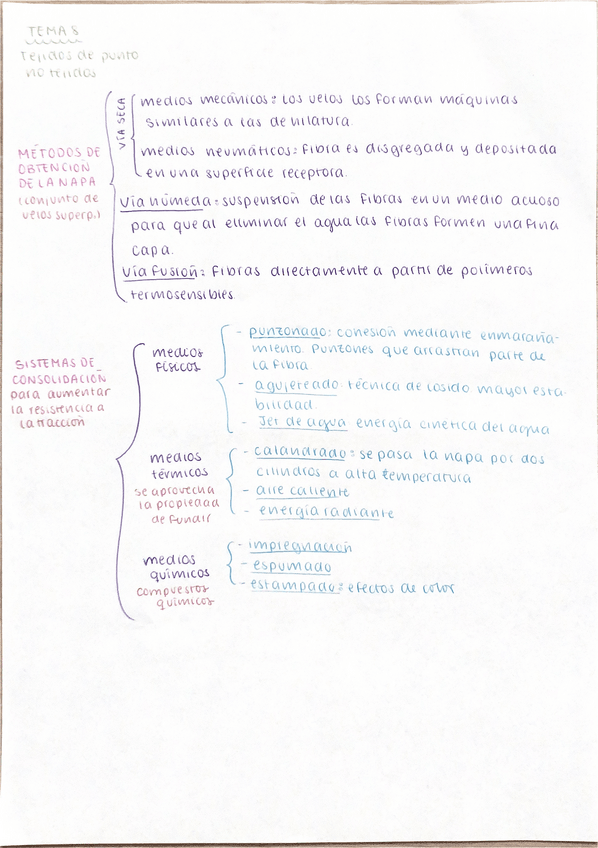 TEMA 8
Tejidos de punto
no tejidos
MÉTODOS DE
OBTENCIÓN
DE LA NAPA
(conjunto de
velos superp.)
VÍA SECA
medios mecánicos: los velos los forman máquinas
similares a las de hilatura.
medios neumáticos: fibra es disgregada y depositada
en una superficie receptora.
vía húmeda: suspensión de las fibras en un medio acuoso
para que al eliminar el agua las fibras formen una fina
capa.
vía fusión: fibras directamente a partir de polímeros
termosensibles.
SISTEMAS DE
CONSOLIDACIÓN
para aumentar
la resistencia a
la tracción
medios
físicos
- punzonado: conesión mediante enmaraña-
miento. Punzones que arrastran parte de
la fibra.
- agujereado: técnica de cosido. mayor esta-
bilidad.
- Jet de agua energía cinética del agua
medios
térmicos
se aprovecha
la propiedad
de fundir
- calandrado: se pasa la napa por dos
cilindros a alta temperatura
- aire caliente
- energía radiante
medios
químicos
compuestos
químicos
- impregnación
- espumado
- estampado: efectos de color